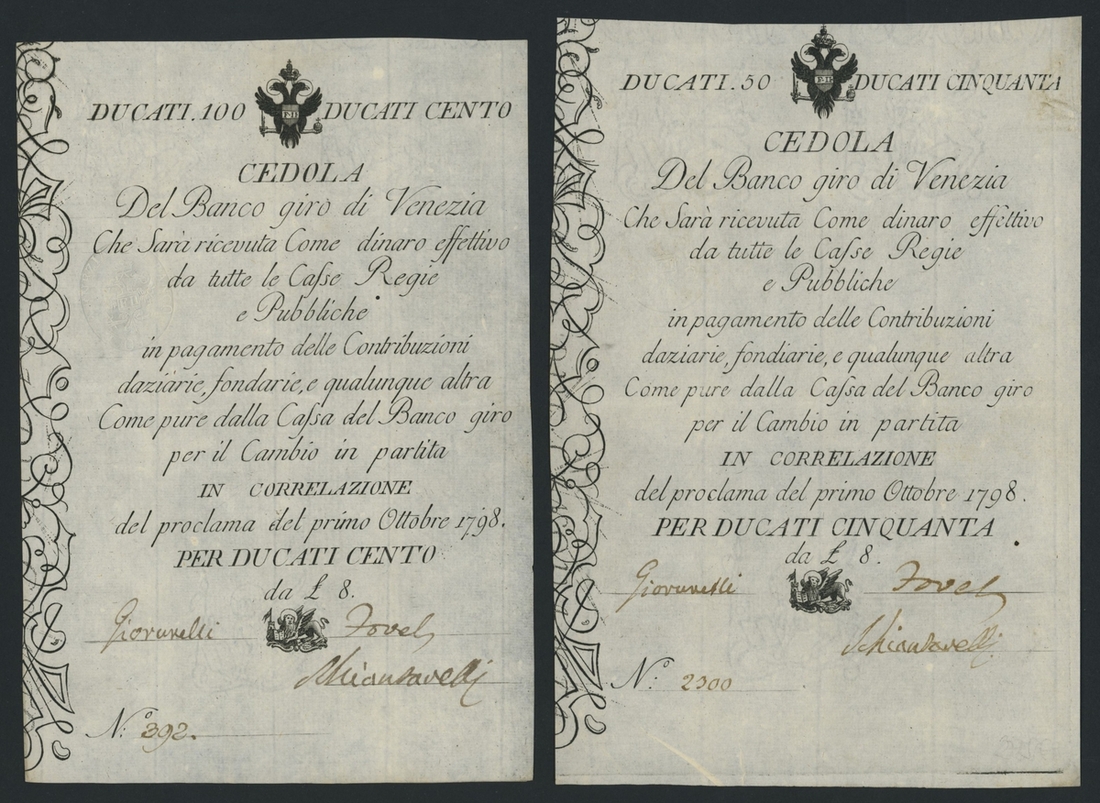 DUCATI. 100 DUCATI CENTO
CEDOLA
Del Banco giro di Venezia
Che Sarà ricevuta Come dinaro effettivo
da tutte le Caſse Regie
e Pubbliche
in pagamento delle Contribuzioni
daziarie, fondarie, e qualunque altra
Come pure dalla Caſsa del Banco giro
per il Cambio in partita
IN CORRELAZIONE
del proclama del primo Ottobre 1798.
PER DUCATI CENTO
da £ 8.
Giovanelli
N.º 392.
DUCATI. 50 DUCATI CINQUANTA
CEDOLA
Del Banco giro di Venezia
Che Sarà ricevuta Come dinaro effettivo
da tutte le Caſse Regie
e Pubbliche
in pagamento delle Contribuzioni
daziarie, fondiarie, e qualunque altra
Come pure dalla Caſsa del Banco giro
per il Cambio in partita
IN CORRELAZIONE
del proclama del primo Ottobre 1798.
PER DUCATI CINQUANTA
da £ 8.
Giovanelli
N.º 2300